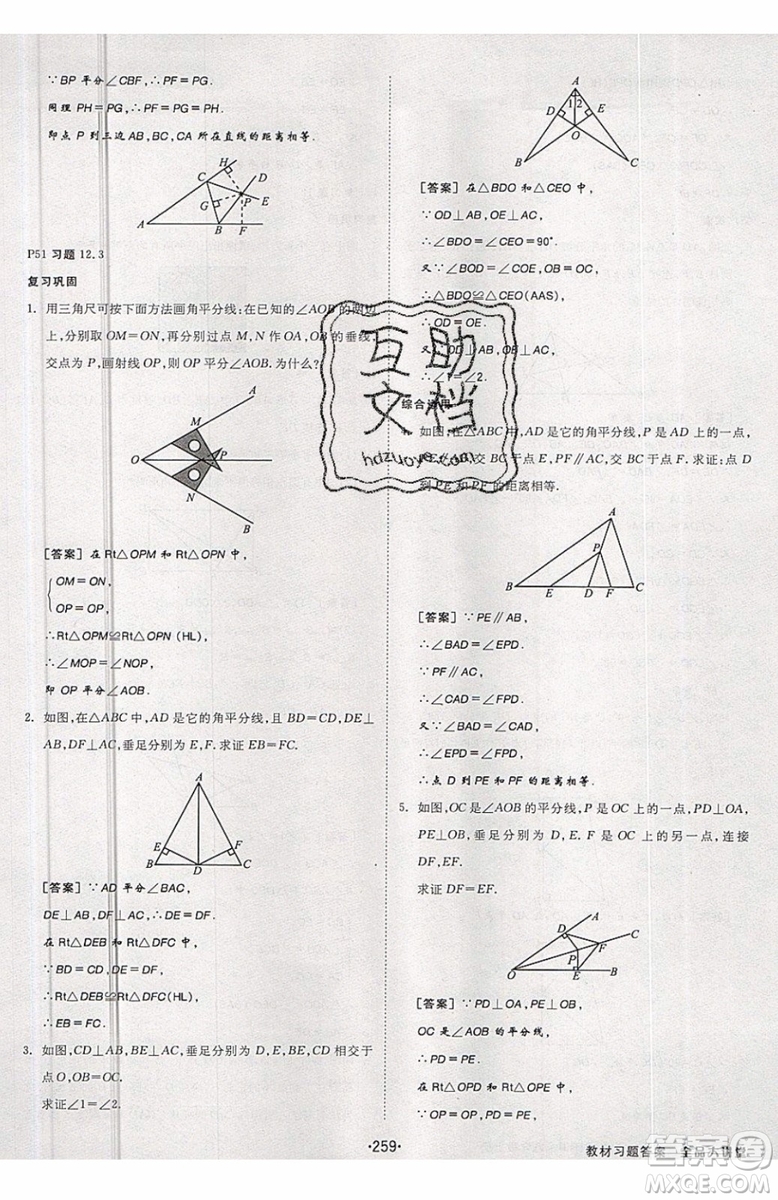 ∵BP 平分∠CBF,∴PF=PG.
同理 PH=PG,∴PF=PG=PH.
即点 P 到三边 AB,BC,CA 所在直线的距离相等.
H
D
C
P
E
G
A
B
F
P51 习题 12.3
复习巩固
1. 用三角尺可按下面方法画角平分线:在已知的∠AOB的两边
上,分别取 OM=ON,再分别过点 M,N 作 OA,OB 的垂线,
交点为 P,画射线 OP,则 OP 平分∠AOB.为什么?
A
M
O
P
N
B
[答案] 在 Rt△OPM 和 Rt△OPN 中,
OM=ON,
OP=OP,
∴Rt△OPM≌Rt△OPN(HL).
∴∠MOP=∠NOP.
即 OP 平分∠AOB.
2. 如图,在△ABC中,AD是它的角平分线,且 BD=CD,DE⊥
AB,DF⊥AC,垂足分别为 E,F.求证 EB=FC.
A
E
F
B
D
C
[答案] ∵AD 平分∠BAC,
DE⊥AB,DF⊥AC,∴DE=DF.
在 Rt△DEB 和 Rt△DFC 中,
∵BD=CD,DE=DF,
∴Rt△DEB≌Rt△DFC(HL).
∴EB=FC.
3. 如图,CD⊥AB,BE⊥AC,垂足分别为 D,E,BE,CD 相交于
点O,OB=OC.
求证∠1=∠2.
A
1 2
D
E
O
B
C
[答案] 在△BDO 和△CEO 中,
∵OD⊥AB,OE⊥AC,
∴∠BDO=∠CEO=90°.
又∵∠BOD=∠COE,OB=OC,
∴△BDO≌△CEO(AAS).
∴OD=OE.
又∵OD⊥AB,OE⊥AC,
∴∠1=∠2.
综合运用
4. 如图,在△ABC中,AD是它的角平分线,P 是 AD 上的一点,
PE∥AB,交 BC 于点 E,PF∥AC,交 BC 于点 F.求证:点 D
到 PE 和 PF 的距离相等.
A
P
B
E
D
F
C
[答案] ∵PE∥AB,
∴∠BAD=∠EPD.
∵PF∥AC,
∴∠CAD=∠FPD.
又∵∠BAD=∠CAD,
∴∠EPD=∠FPD.
∴点 D 到 PE 和 PF 的距离相等.
5. 如图,OC是∠AOB的平分线,P 是 OC 上的一点,PD⊥OA,
PE⊥OB,垂足分别为 D,E.F 是 OC 上的另一点,连接
DF,EF.
求证 DF=EF.
A
D
C
F
P
O
E
B
[答案] ∵PD⊥OA,PE⊥OB,
OC 是∠AOB 的平分线,
∴PD=PE.
在 Rt△OPD 和 Rt△OPE 中,
∵OP=OP,PD=PE,
·259·
教材习题答案 全品大讲堂
互助
文档
hdzuoye.com
答案圈
MXQE.COM